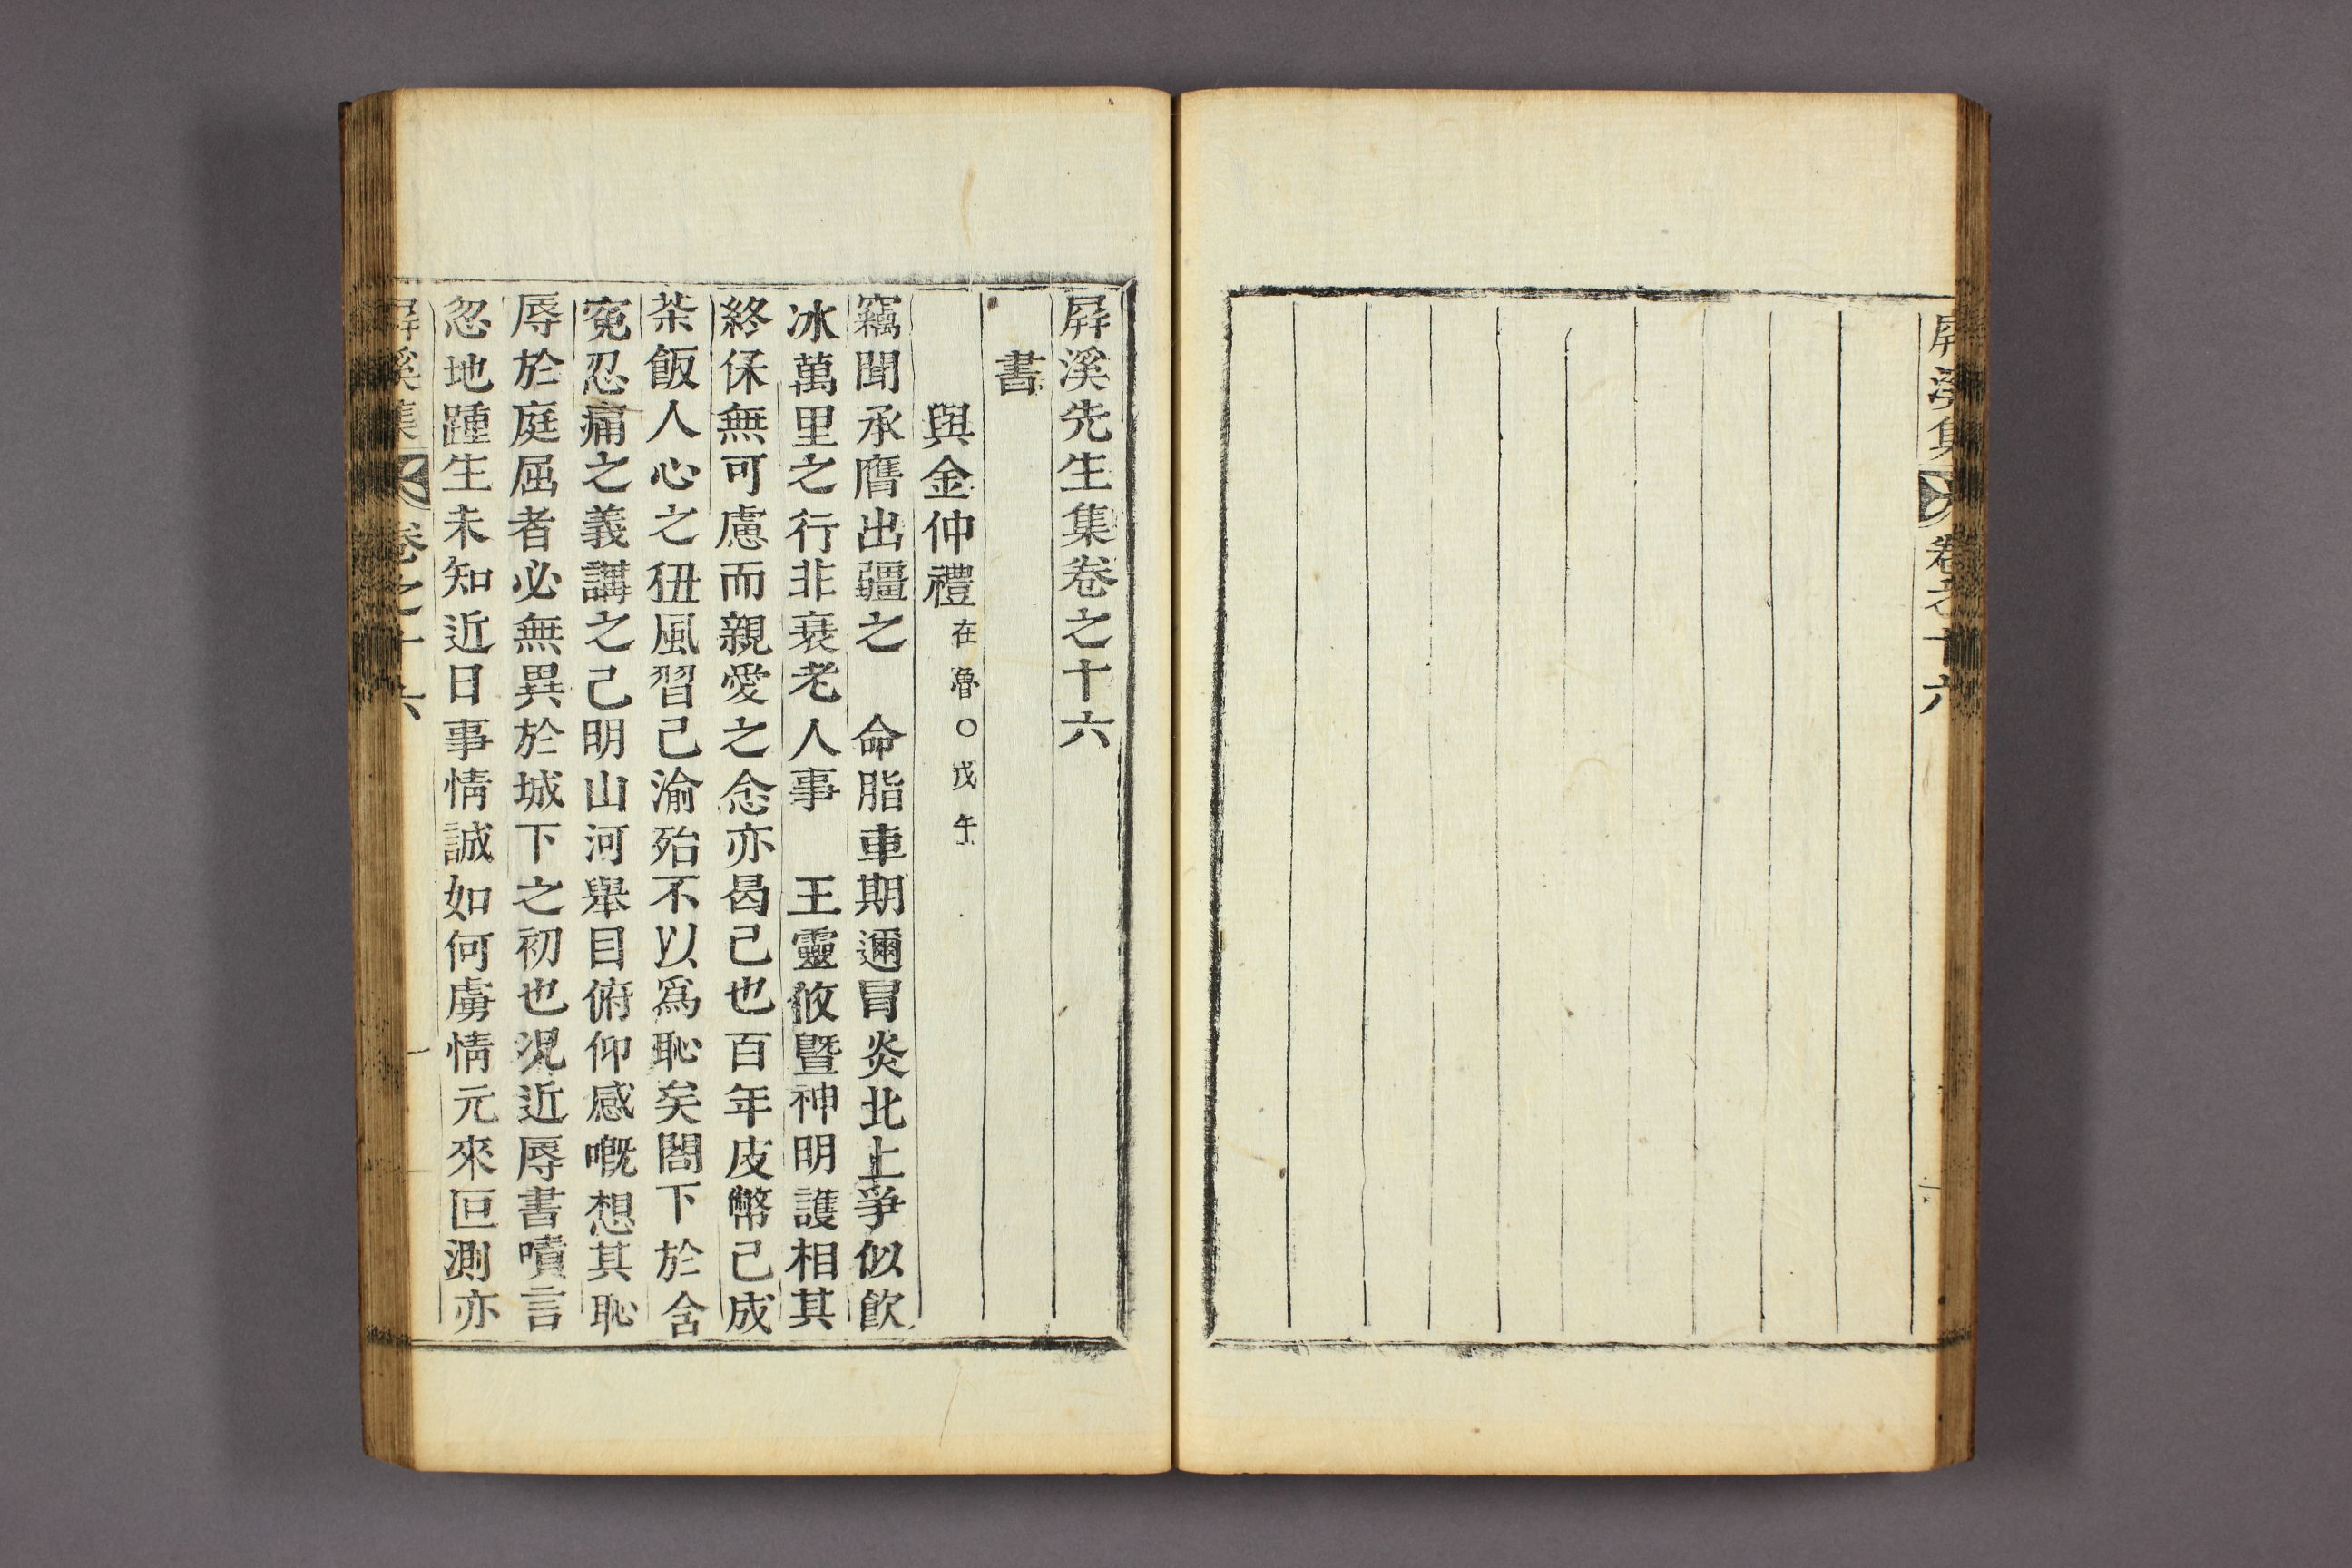 屛溪集 卷之十六
屛溪先生集卷之十六
書
與金仲禮在魯○戊午
竊聞承膺出疆之 命脂車期邇冒炎北上爭似飮
冰萬里之行非衰老人事 王靈攸曁神明護相其
終保無可慮而親愛之念亦曷已也百年皮幣已成
茶飯人心之狃風習已渝殆不以爲恥矣閤下於含
寃忍痛之義講之已明山河舉目俯仰感嘅想其恥
辱於庭屈者必無異於城下之初也况近辱書嘖言
忽地踵生未知近日事情誠如何虜情元來叵測亦
屛溪集 卷之十六 一